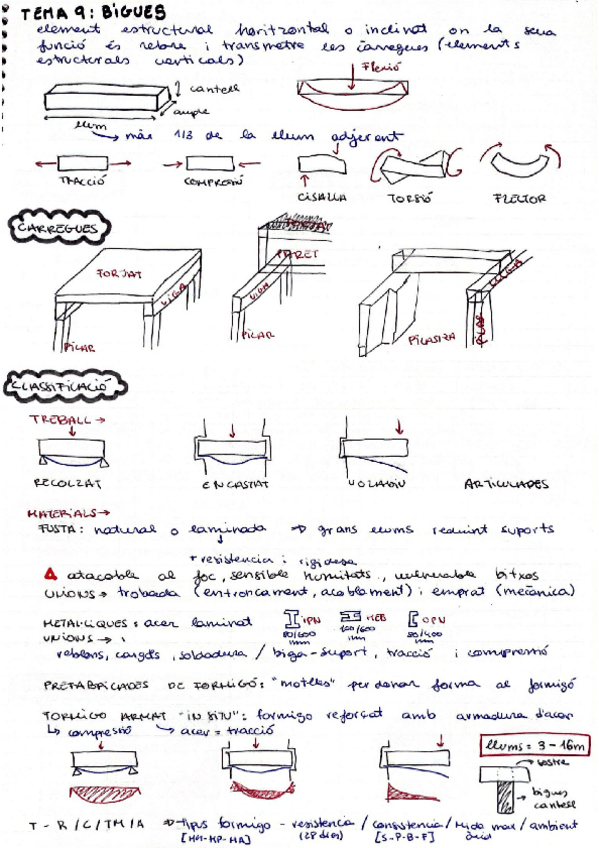 TEMA 9: BIGUES
element estructural horitzontal o inclinat on la seua
funció és rebre i transmetre les càrregues (elements
estructurals verticals)
Flexió
cantell
ample
llum
màx 1/3 de la llum adjacent
TRACCIÓ
COMPRESIÓ
CISALLA
TORSIÓ
FLECTOR
CARREGUES
FORJAT
BIGA
PILAR
PARET
BIGA
PILAR
PILASTRA
PILAR
CLASSIFICACIÓ
TREBALL →
RECOLZAT
ENCASTAT
VOLADIU
ARTICULADES
MATERIALS →
FUSTA: natural o laminada ⇒ grans llums reduint suports
+ resistencia i rigidesa
atacable al foc, sensible humitats, vulnerable bitxos
UNIONS → trobada (entroncament, acoblament) i emprat (mecànica)
METAL·LIQUES: acer laminat
IPN
80/600 mm
HEB
100/600 mm
UPN
80/400 mm
UNIONS →
reblons, cargols, soldadura / biga-suport, tracció i compresió
PREFABRICADES DE FORMIGÓ: "motlles" per donar forma al formigó
FORMIGÓ ARMAT "IN SITU": formigo reforçat amb armadura d'acer
compresió
acer = tracció
llums = 3 - 16m
sostre
bigues cantell
T - R / C / TM / A ⇒ tipus formigo - resistencia / consistencia / mida max / ambient
[HM-HP-HA]
(28 dies)
[S-P-B-F]